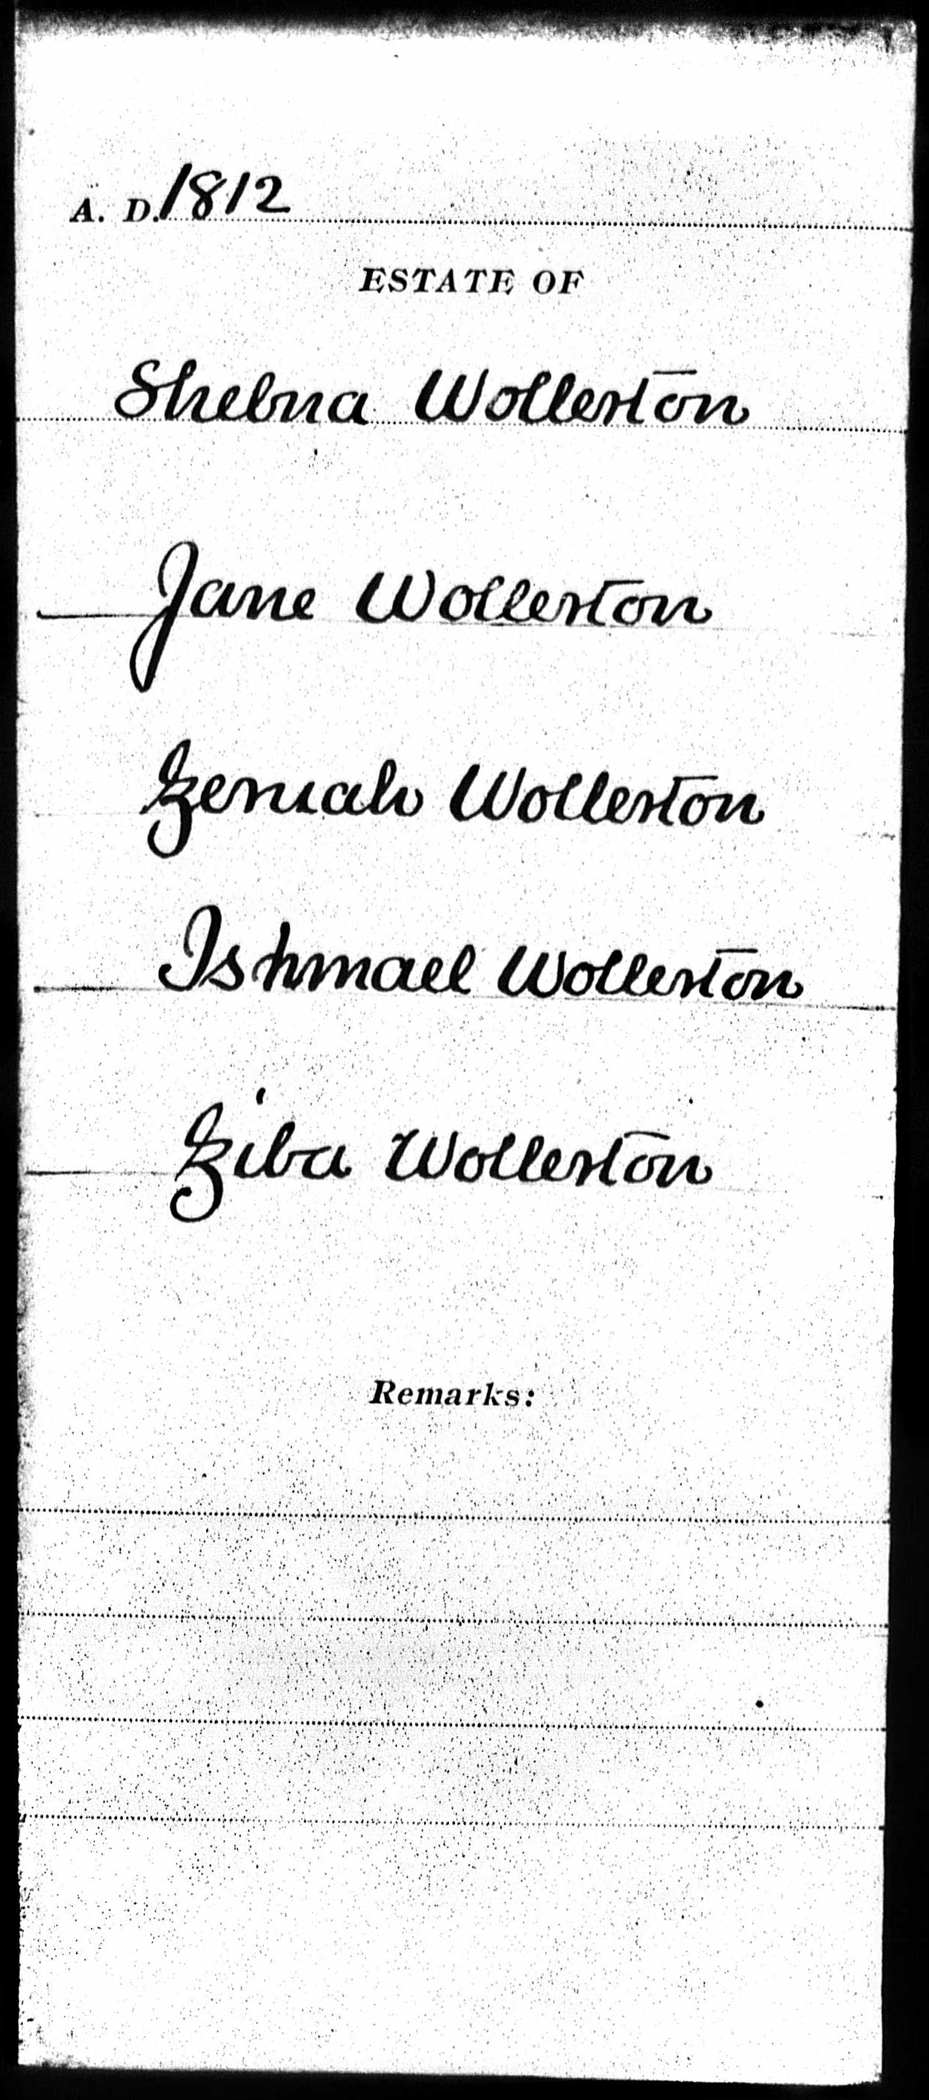 A. D. 1812
ESTATE OF
Shebna Wollerton
Jane Wollerton
Zeruah Wollerton
Ishmael Wollerton
Ziba Wollerton
Remarks: